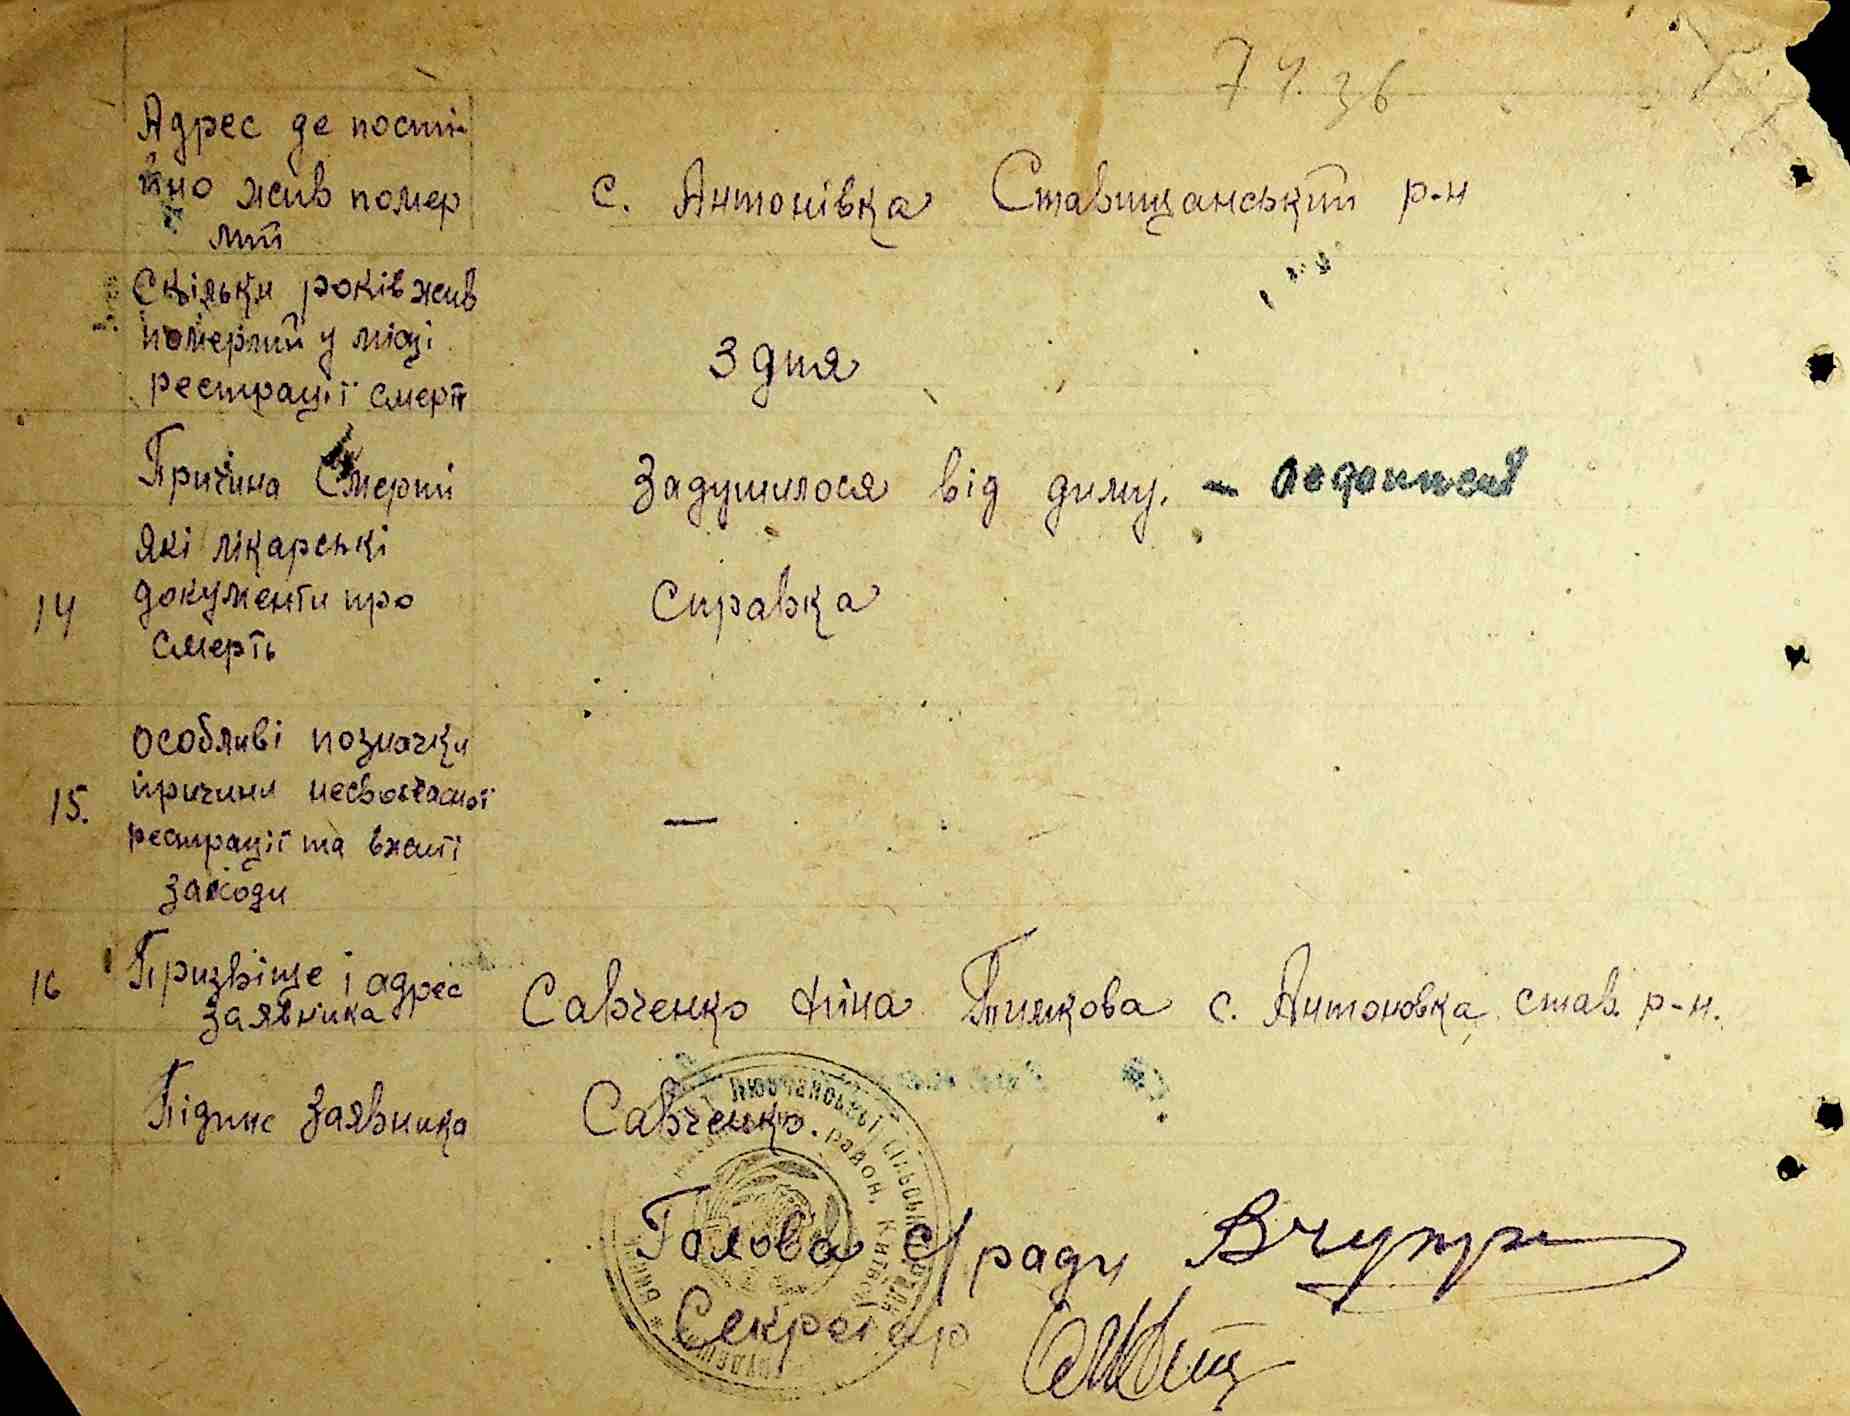 74.36
Адрес де пості-
йно жив помер
лий
с. Антонівка Ставищанський р-н
Скільки років жив
померлий у місці
реєстрації смерті
3 дня
Причина Смерти
Задушилося від диму. -
14
Які лікарські
документи про
смерть
Справка
15.
особливі позначки
причини несвоєчасної
реєстрації та вжиті
заходи
—
16
Призвіще і адрес
заявника
Савченко Ніна Тимкова с. Антоновка став. р-н.
Підпис Заявника
Савченко.
Голова с/ради
Секретар
район,